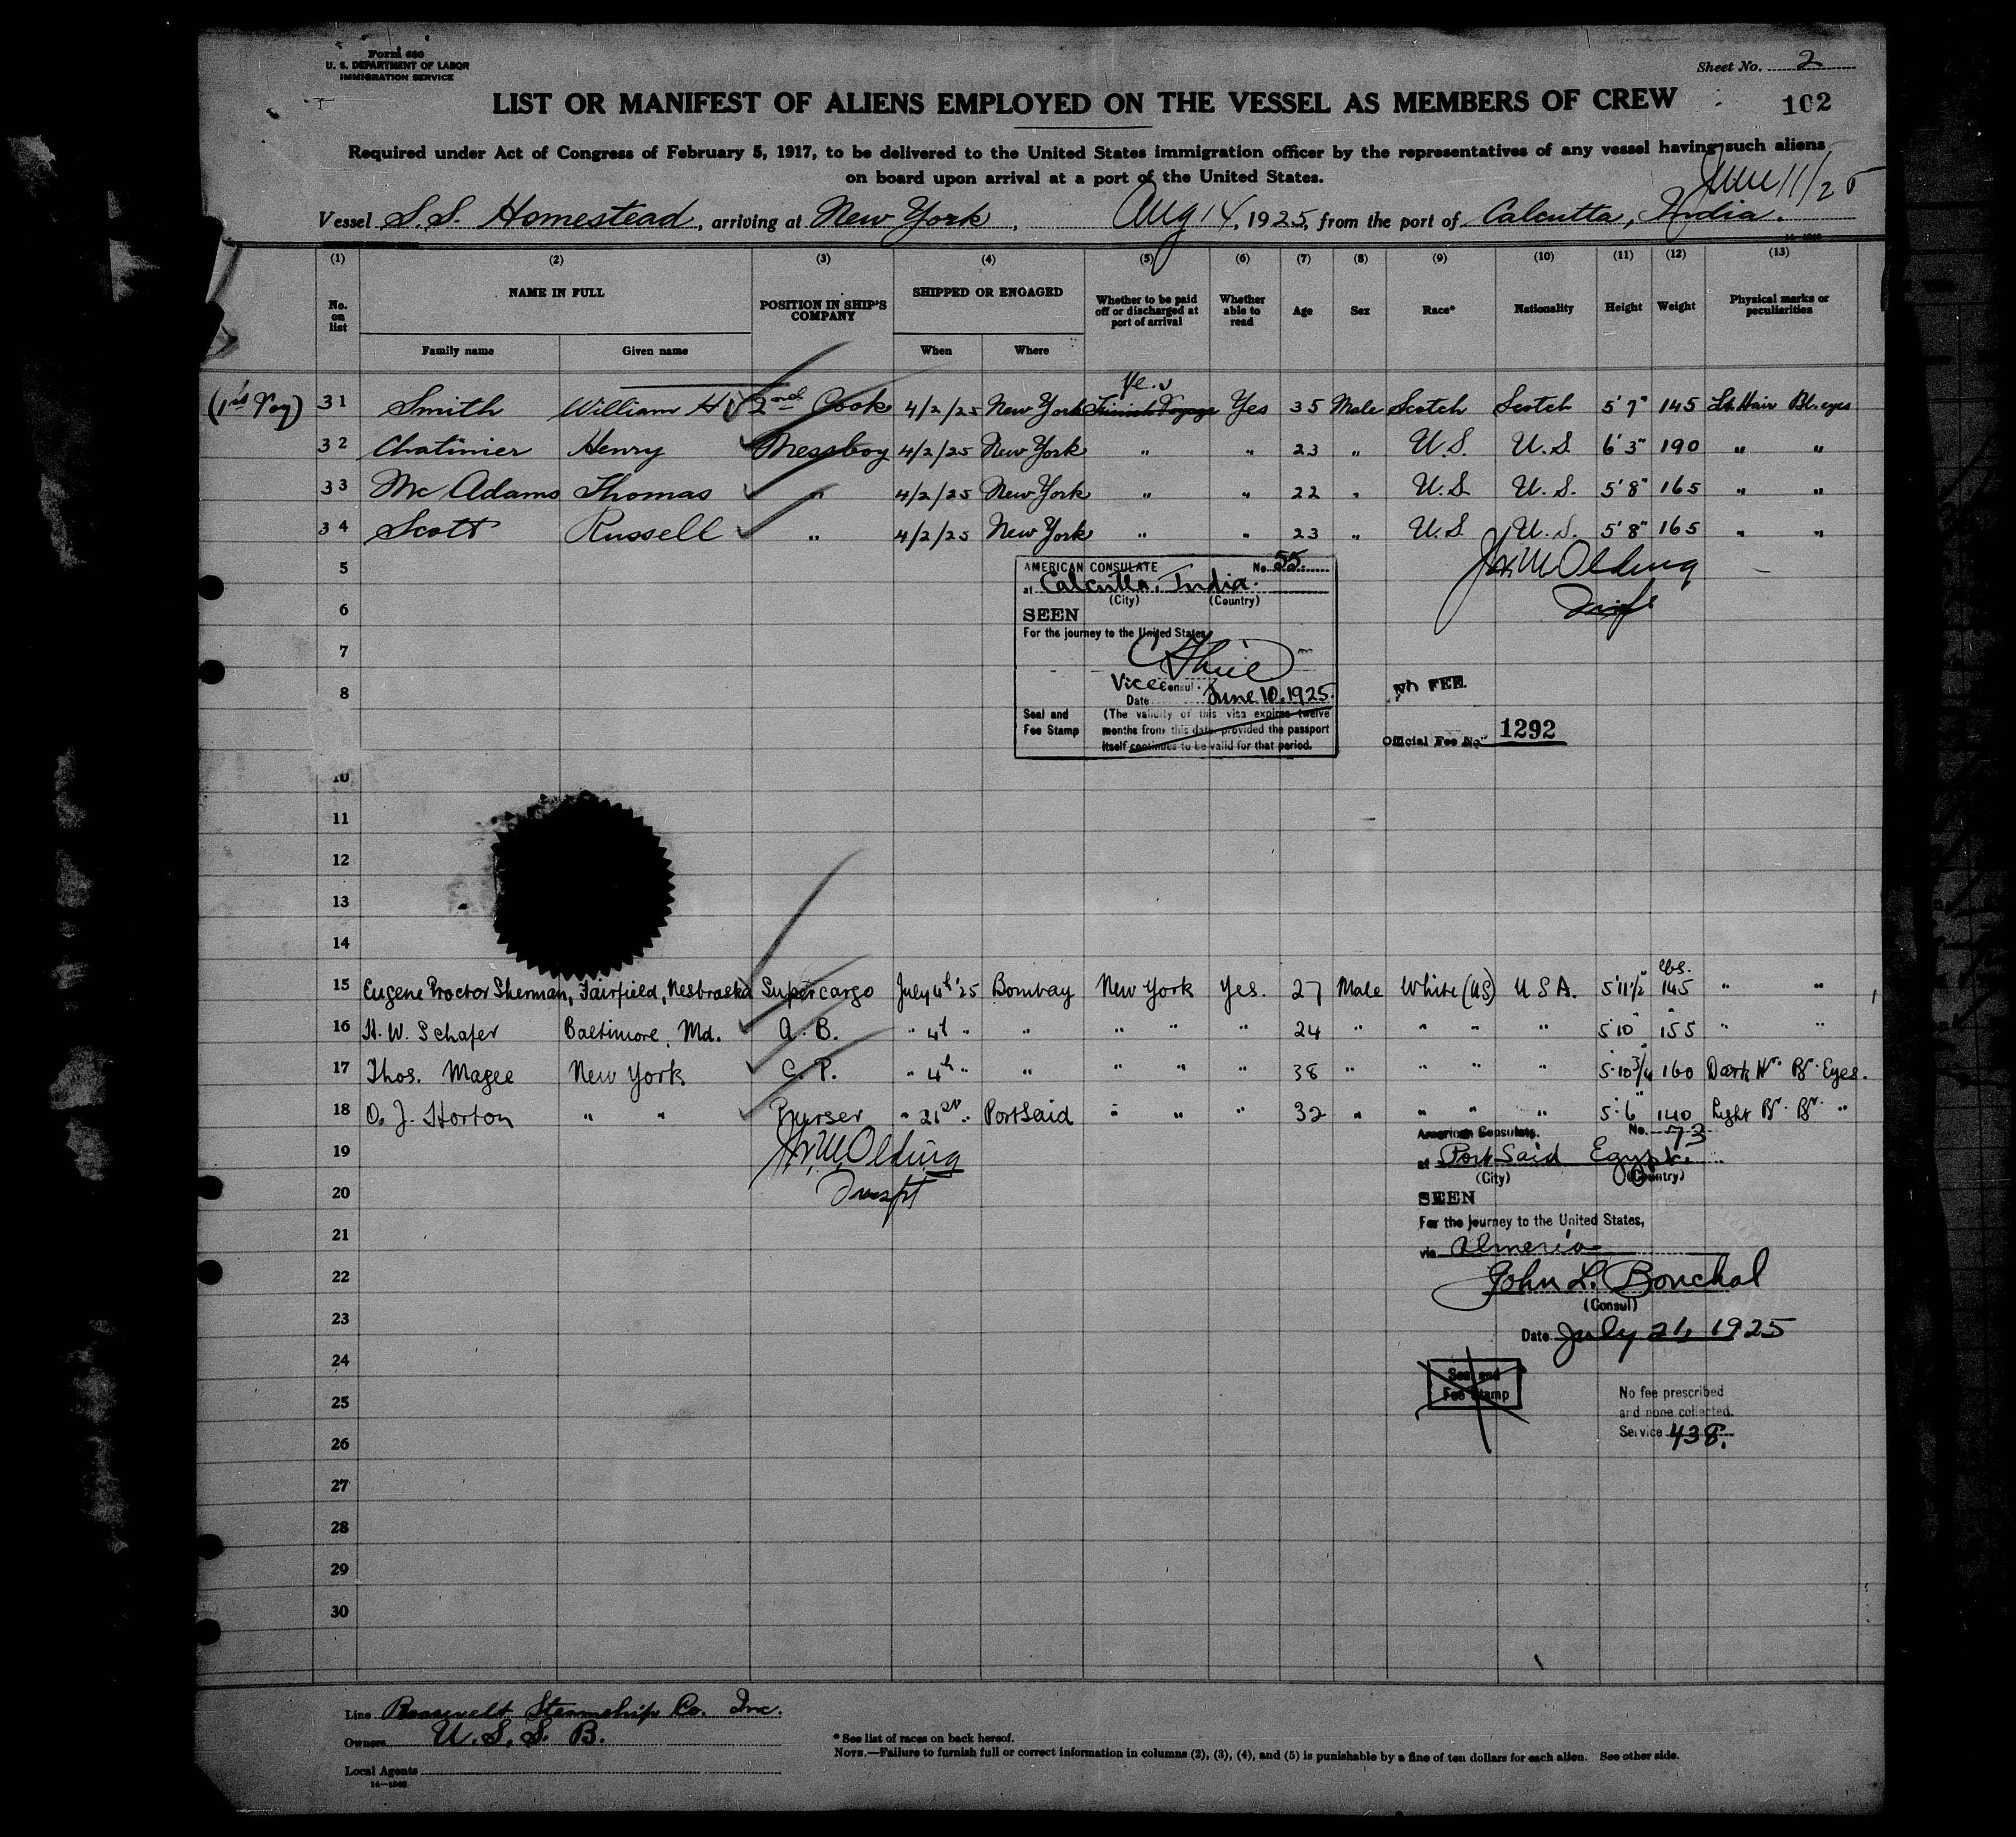 Form 680
U. S. DEPARTMENT OF LABOR
IMMIGRATION SERVICE
Sheet No. 2
LIST OR MANIFEST OF ALIENS EMPLOYED ON THE VESSEL AS MEMBERS OF CREW
102
Required under Act of Congress of February 5, 1917, to be delivered to the United States immigration officer by the representatives of any vessel having such aliens
on board upon arrival at a port of the United States.
June 11/25
Vessel S.S. Homestead, arriving at New York, Aug 14, 1925, from the port of Calcutta, India.
(1) (2) (3) (4) (5) (6) (7) (8) (9) (10) (11) (12) (13)
No. on list NAME IN FULL POSITION IN SHIP'S COMPANY SHIPPED OR ENGAGED Whether to be paid off or discharged at port of arrival Whether able to read Age Sex Race* Nationality Height Weight Physical marks or peculiarities
Family name Given name When Where
Yes
(1st Voy) 31 Smith William H 2nd Cook 4/2/25 New York Finish Voyage Yes 35 Male Scotch Scotch 5'7" 145 Lt. Hair Bl. eyes
32 Chatinier Henry Messboy 4/2/25 New York " " 23 " U.S. U.S 6'3" 190 " "
33 Mc Adams Thomas " 4/2/25 New York " " 22 " U.S. U.S. 5'8" 165 " "
34 Scott Russell " 4/2/25 New York " " 23 " U.S U.S. 5'8" 165 " "
5
AMERICAN CONSULATE No. 55
at Calcutta, India.
(City) (Country)
6
SEEN
For the journey to the United States
7
8
Vice Consul
NO FEE
Date June 10, 1925.
Seal and Fee Stamp
(The validity of this visa expires twelve
months from this date provided the passport
itself continues to be valid for that period.
Official Fee No. 1292
10
11
12
13
14
lbs.
15 Eugene Proctor Sherman, Fairfield, Nesbraska Supercargo July 4th '25 Bombay New York Yes. 27 Male White (US) U S A. 5'11½" 145 " "
16 H. W. Schafer Baltimore, Md. A. B. " 4th " " " " " 24 " " " " 5'10" 155 " "
17 Thos. Magee New York C. P. " 4th " " " " " 38 " " " " 5'10¾" 160 Dark Hr. Br. Eyes.
18 O. J. Horton " " Purser " 21st " Port Said " " " 32 " " " " 5'6" 140 Light Br. Br. "
American Consulate. No. 73
19
at Port Said Egypt.
(City) (Country)
20
SEEN
21
For the journey to the United States,
via Almeria
22
John L. Bouchal
(Consul)
23
Date July 21, 1925
24
Seal and
Fee Stamp
25
No fee prescribed
and none collected.
Service 438.
26
27
28
29
30
Line Roosevelt Steamship Co. Inc.
Owners U. S. S. B.
Local Agents
14—1940
* See list of races on back hereof.
NOTE.—Failure to furnish full or correct information in columns (2), (3), (4), and (5) is punishable by a fine of ten dollars for each alien. See other side.